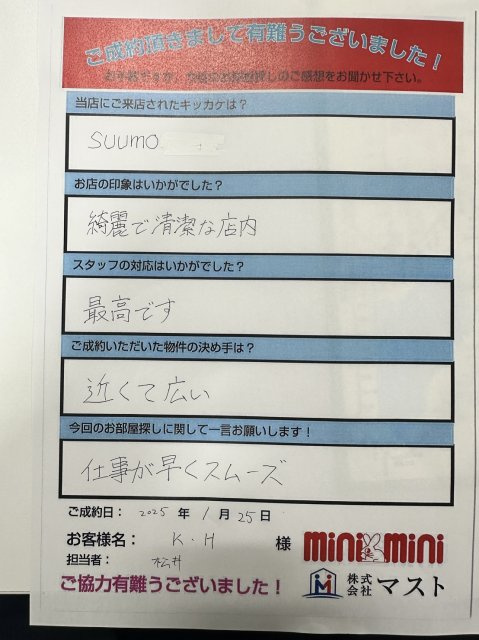 ご成約頂きまして有難うございました！
お手数ですが、今回のお部屋探しのご感想をお聞かせ下さい。
当店にご来店されたキッカケは？
SUUMO
お店の印象はいかがでした？
綺麗で清潔な店内
スタッフの対応はいかがでした？
最高です
ご成約いただいた物件の決め手は？
近くて広い
今回のお部屋探しに関して一言お願いします！
仕事が早くスムーズ
ご成約日： 2025 年 1 月 25 日
お客様名： K.H 様
担当者： 松井
mini mini
ご協力有難うございました！
株式会社 マスト